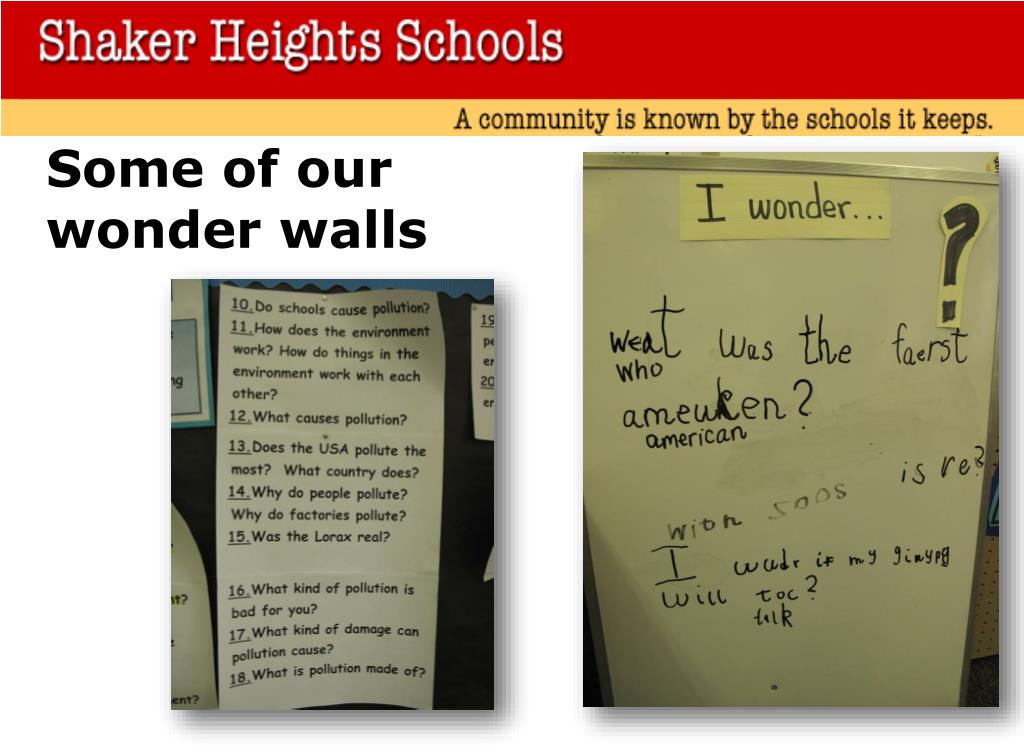 Shaker Heights Schools
A community is known by the schools it keeps.
Some of our
wonder walls
10. Do schools cause pollution?
11. How does the environment
work? How do things in the
environment work with each
other?
12. What causes pollution?
13. Does the USA pollute the
most? What country does?
14. Why do people pollute?
Why do factories pollute?
15. Was the Lorax real?
16. What kind of pollution is
bad for you?
17. What kind of damage can
pollution cause?
18. What is pollution made of?
19
20
I wonder...
?
was the faerst
who
american
is re?
I wudr if my
will toc?
talk